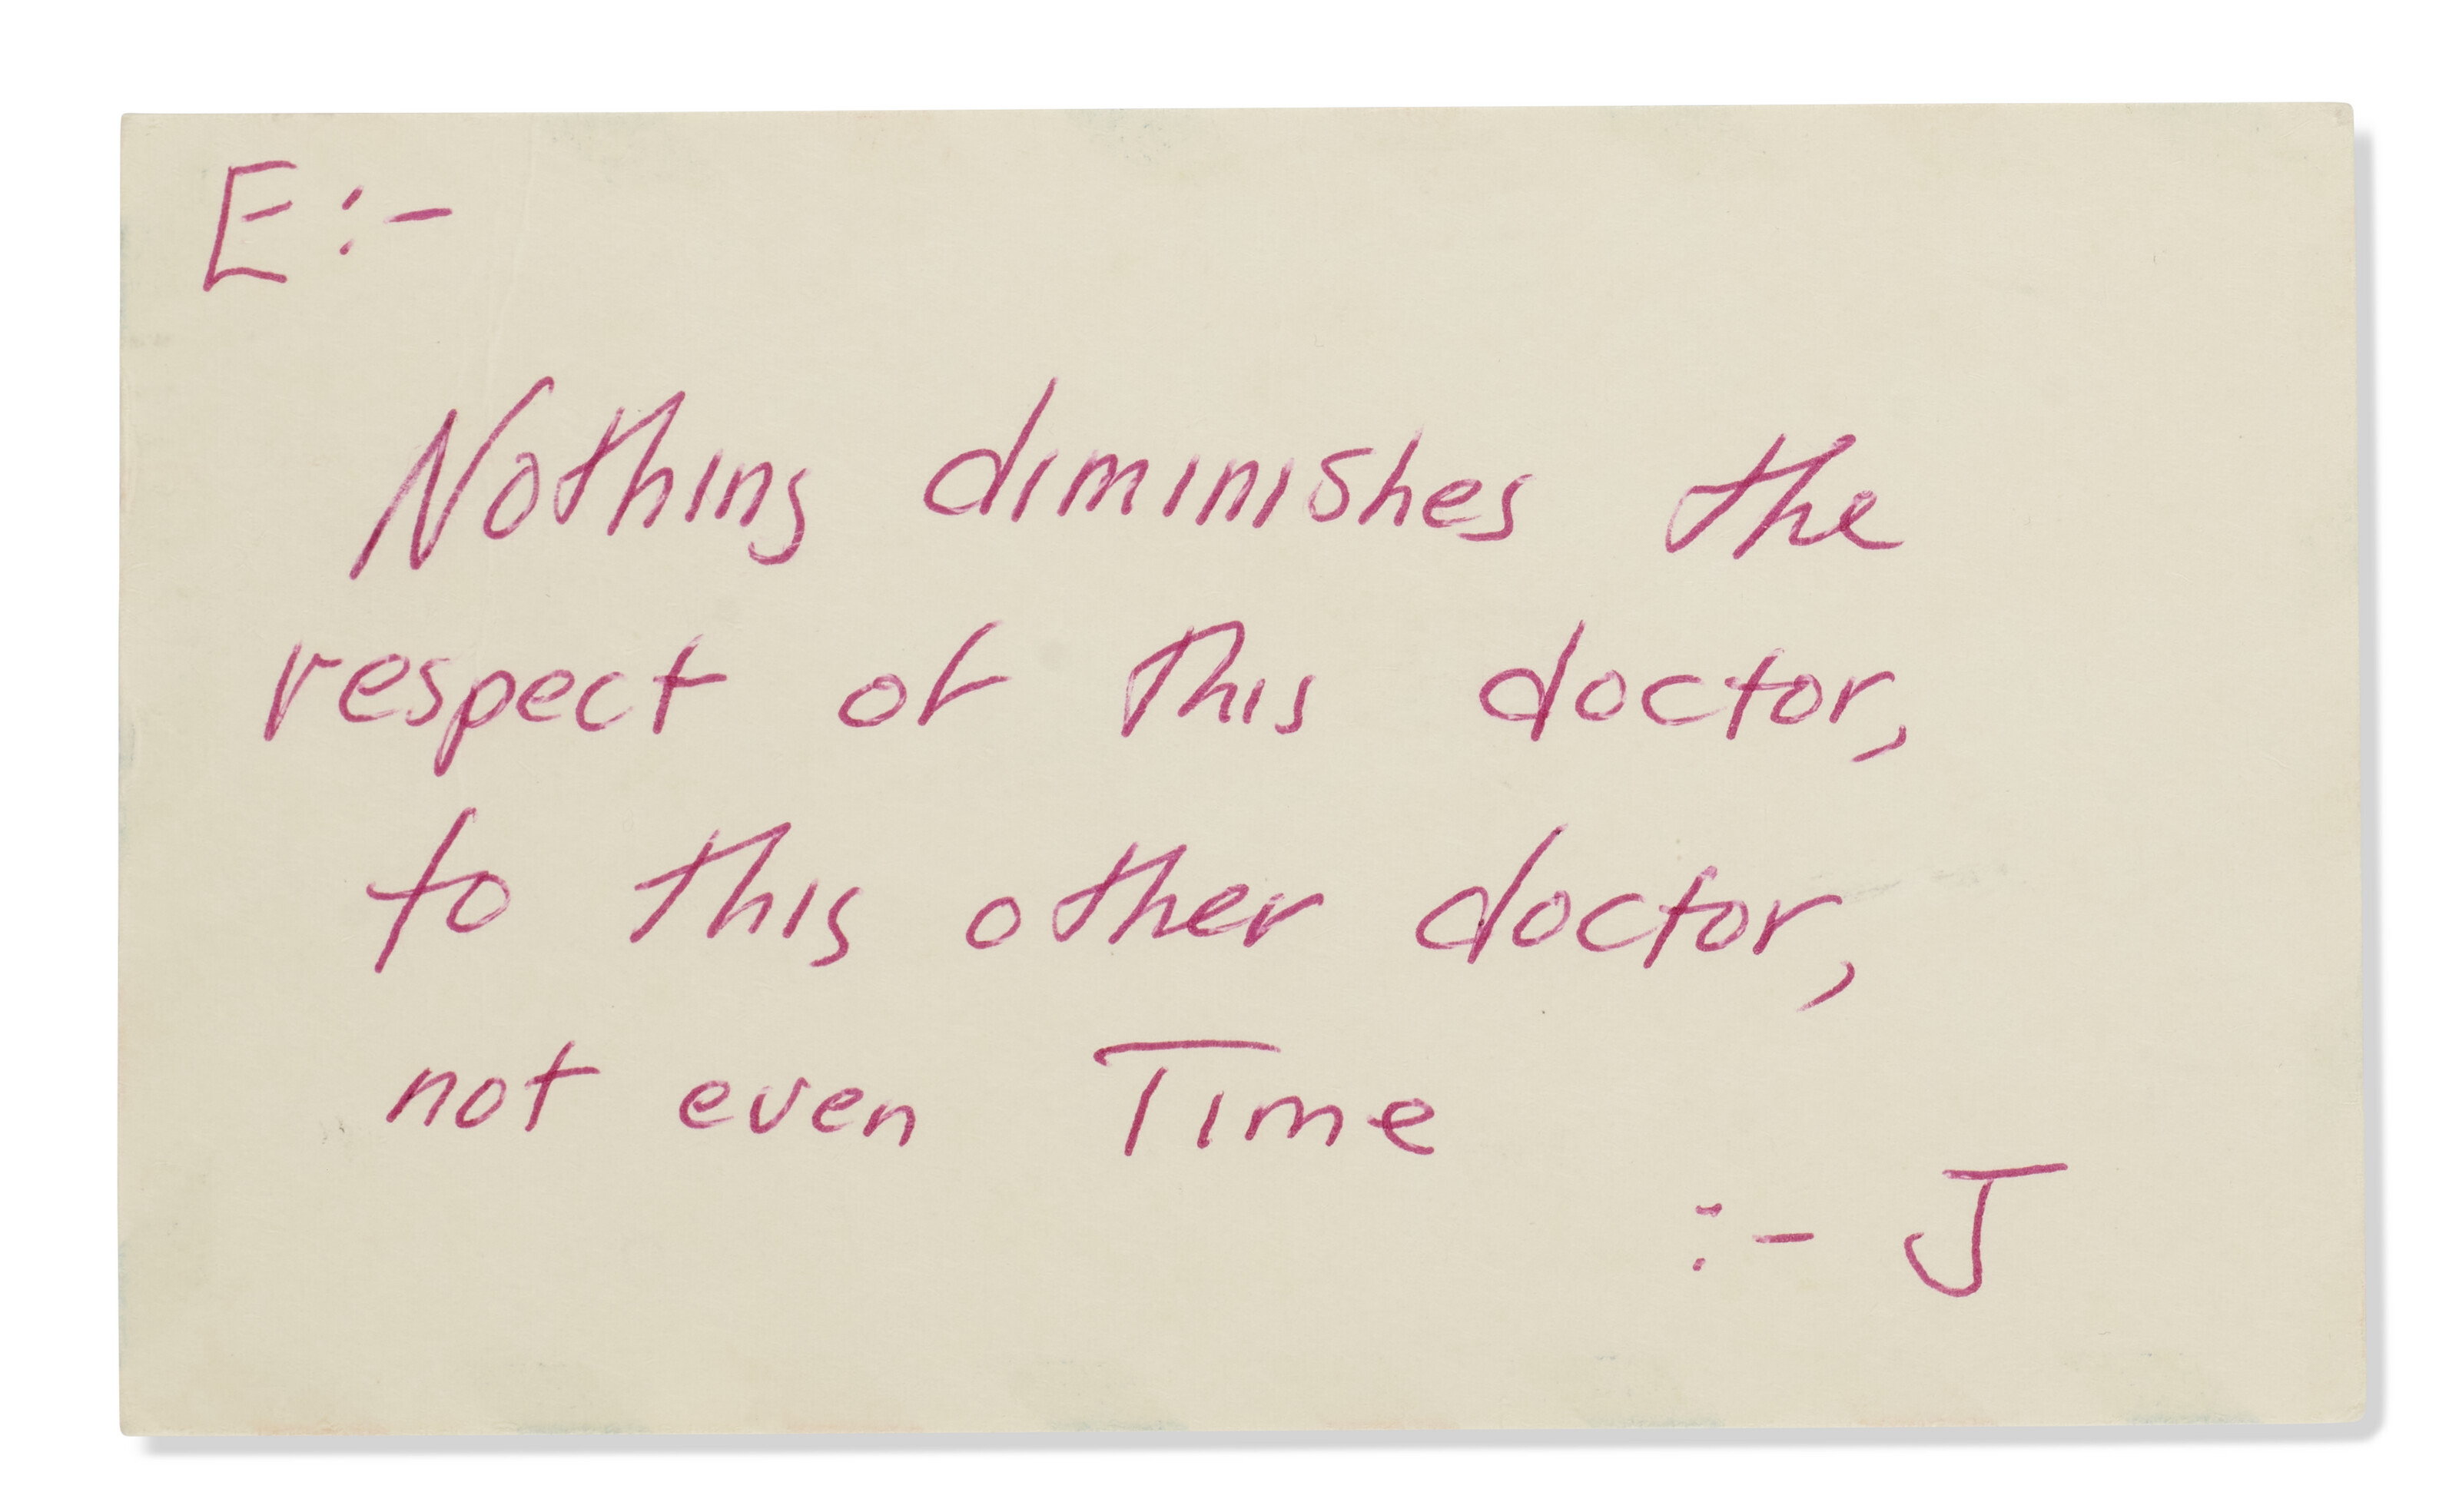 E:-
Nothing diminishes the
respect of this doctor,
to this other doctor,
not even Time
:- J